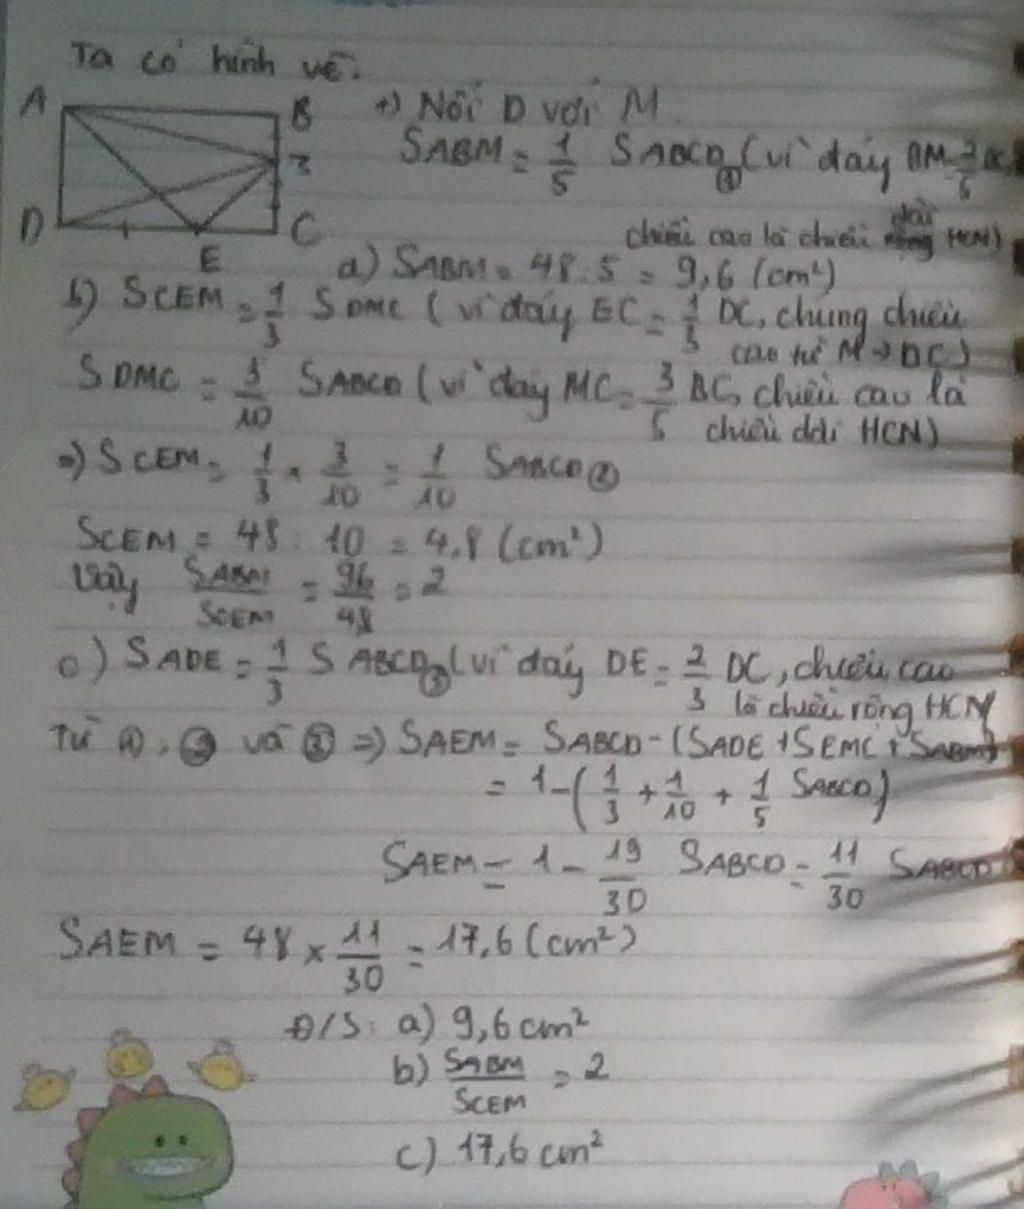 Ta có hình vẽ:
A B
M
D E C
+) Nối D với M
SABM = 1/5 SABCD ① (vì đáy BM = 2/5 BC,
chiều cao là chiều dài HCN)
a) SABM = 48 : 5 = 9,6 (cm²)
b) SCEM = 1/3 SDMC (vì đáy EC = 1/3 DC, chung chiều
cao từ M → DC)
SDMC = 3/10 SABCD (vì đáy MC = 3/5 BC, chiều cao là
chiều dài HCN)
=) SCEM = 1/3 × 3/10 = 1/10 SABCD ②
SCEM = 48 : 10 = 4,8 (cm²)
Vậy SABM/SCEM = 96/48 = 2
c) SADE = 1/3 SABCD ③ (vì đáy DE = 2/3 DC, chiều cao
là chiều rộng HCN)
Từ ①, ③ và ② =) SAEM = SABCD - (SADE + SEMC + SABM)
= 1 - (1/3 + 1/10 + 1/5 SABCD)
SAEM = 1 - 19/30 SABCD = 11/30 SABCD
SAEM = 48 × 11/30 = 17,6 (cm²)
Đ/S: a) 9,6 cm²
b) SABM/SCEM = 2
c) 17,6 cm²